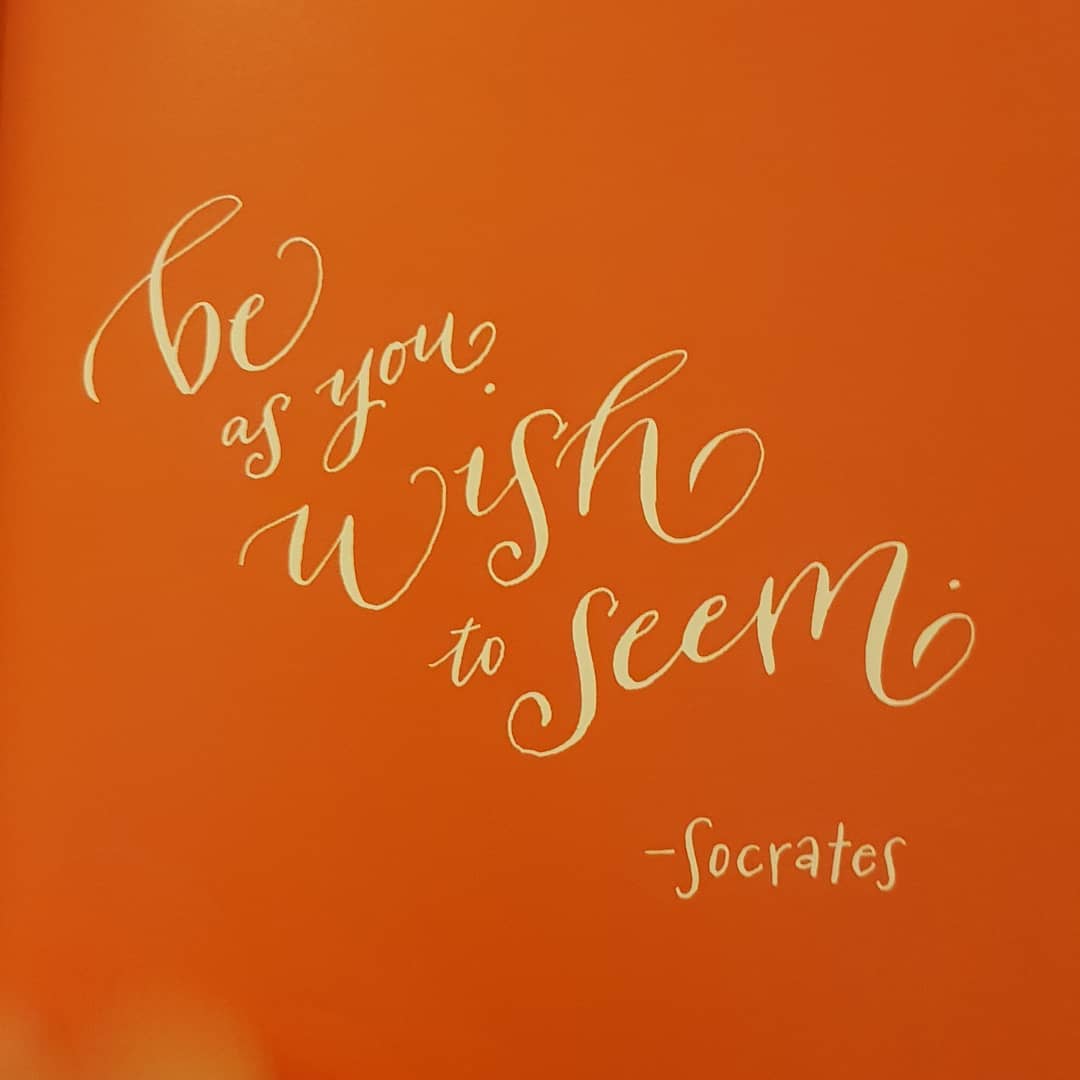 be
as you
wish
to seem.
-Socrates